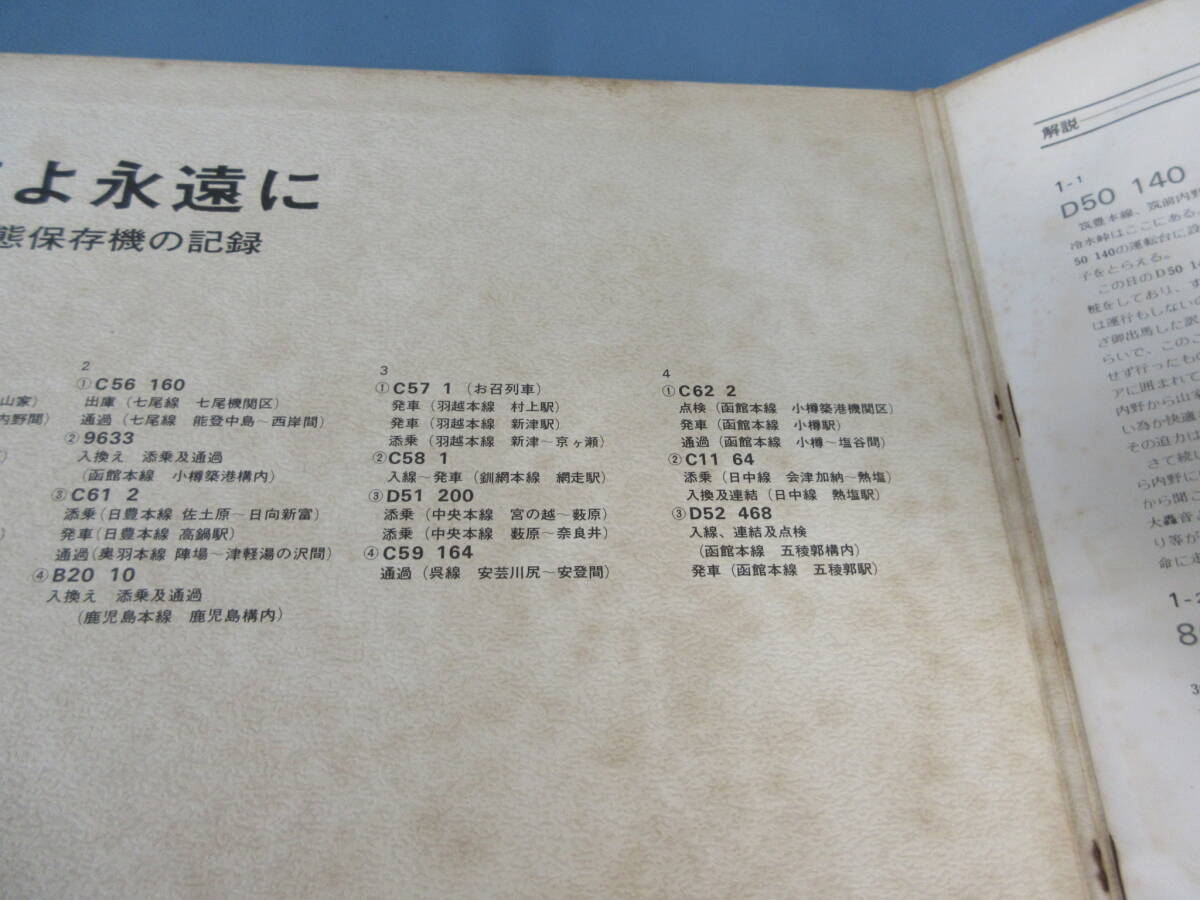 よ永遠に
態保存機の記録
山家)
内野間)
2
①C56 160
出庫(七尾線 七尾機関区)
通過(七尾線 能登中島~西岸間)
②9633
入換え 添乗及通過
(函館本線 小樽築港構内)
③C61 2
添乗(日豊本線 佐土原~日向新富)
発車(日豊本線 高鍋駅)
通過(奥羽本線 陣場~津軽湯の沢間)
④B20 10
入換え 添乗及通過
(鹿児島本線 鹿児島構内)
3
①C57 1 (お召列車)
発車(羽越本線 村上駅)
発車(羽越本線 新津駅)
添乗(羽越本線 新津~京ヶ瀬)
②C58 1
入線~発車(釧網本線 網走駅)
③D51 200
添乗(中央本線 宮の越~薮原)
添乗(中央本線 薮原~奈良井)
④C59 164
通過(呉線 安芸川尻~安登間)
4
①C62 2
点検(函館本線 小樽築港機関区)
発車(函館本線 小樽駅)
通過(函館本線 小樽~塩谷間)
②C11 64
添乗(日中線 会津加納~熱塩)
入換及連結(日中線 熱塩駅)
③D52 468
入線、連結及点検
(函館本線 五稜郭構内)
発車(函館本線 五稜郭駅)
解説
1-1
D50 140
筑豊本線、筑前内野
冷水峠はここにある。
50 140の運転台に設
子をとらえる。
この日のD50 14
粧をしており、す
は運行もしないの
ざ御出馬した訳
らいで、このこ
せず行ったもの
アに囲まれて
内野から山家
い為か快適
その迫力は
さて続い
ら内野に
から聞こ
大轟音よ
り等が
命に走
1-2
8
3